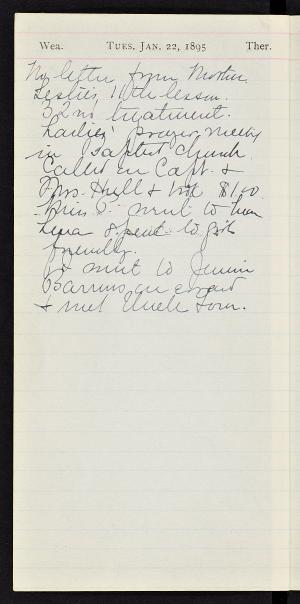 Wea. TUES. JAN. 22, 1895 Ther.
My letter from Morton
Leslie's 10th lesson.
32nd treatment.
Ladies' prayer meeting
in Baptist Church.
Called on Capt. &
Mrs. Hull & $1.00
Miss went to hear
Lena speak to girls
friendly.
I went to Jennie
Barrows on errand
& met Uncle Tom.